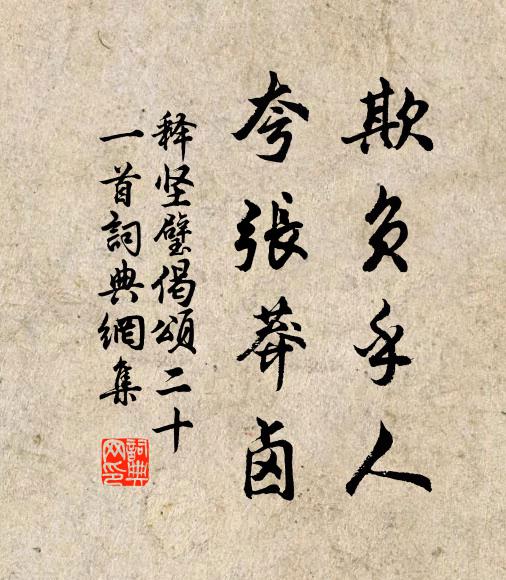 欺负平人
夸張莽卤
释坚璧偈頌二十
一首詞典網集
詞典网印